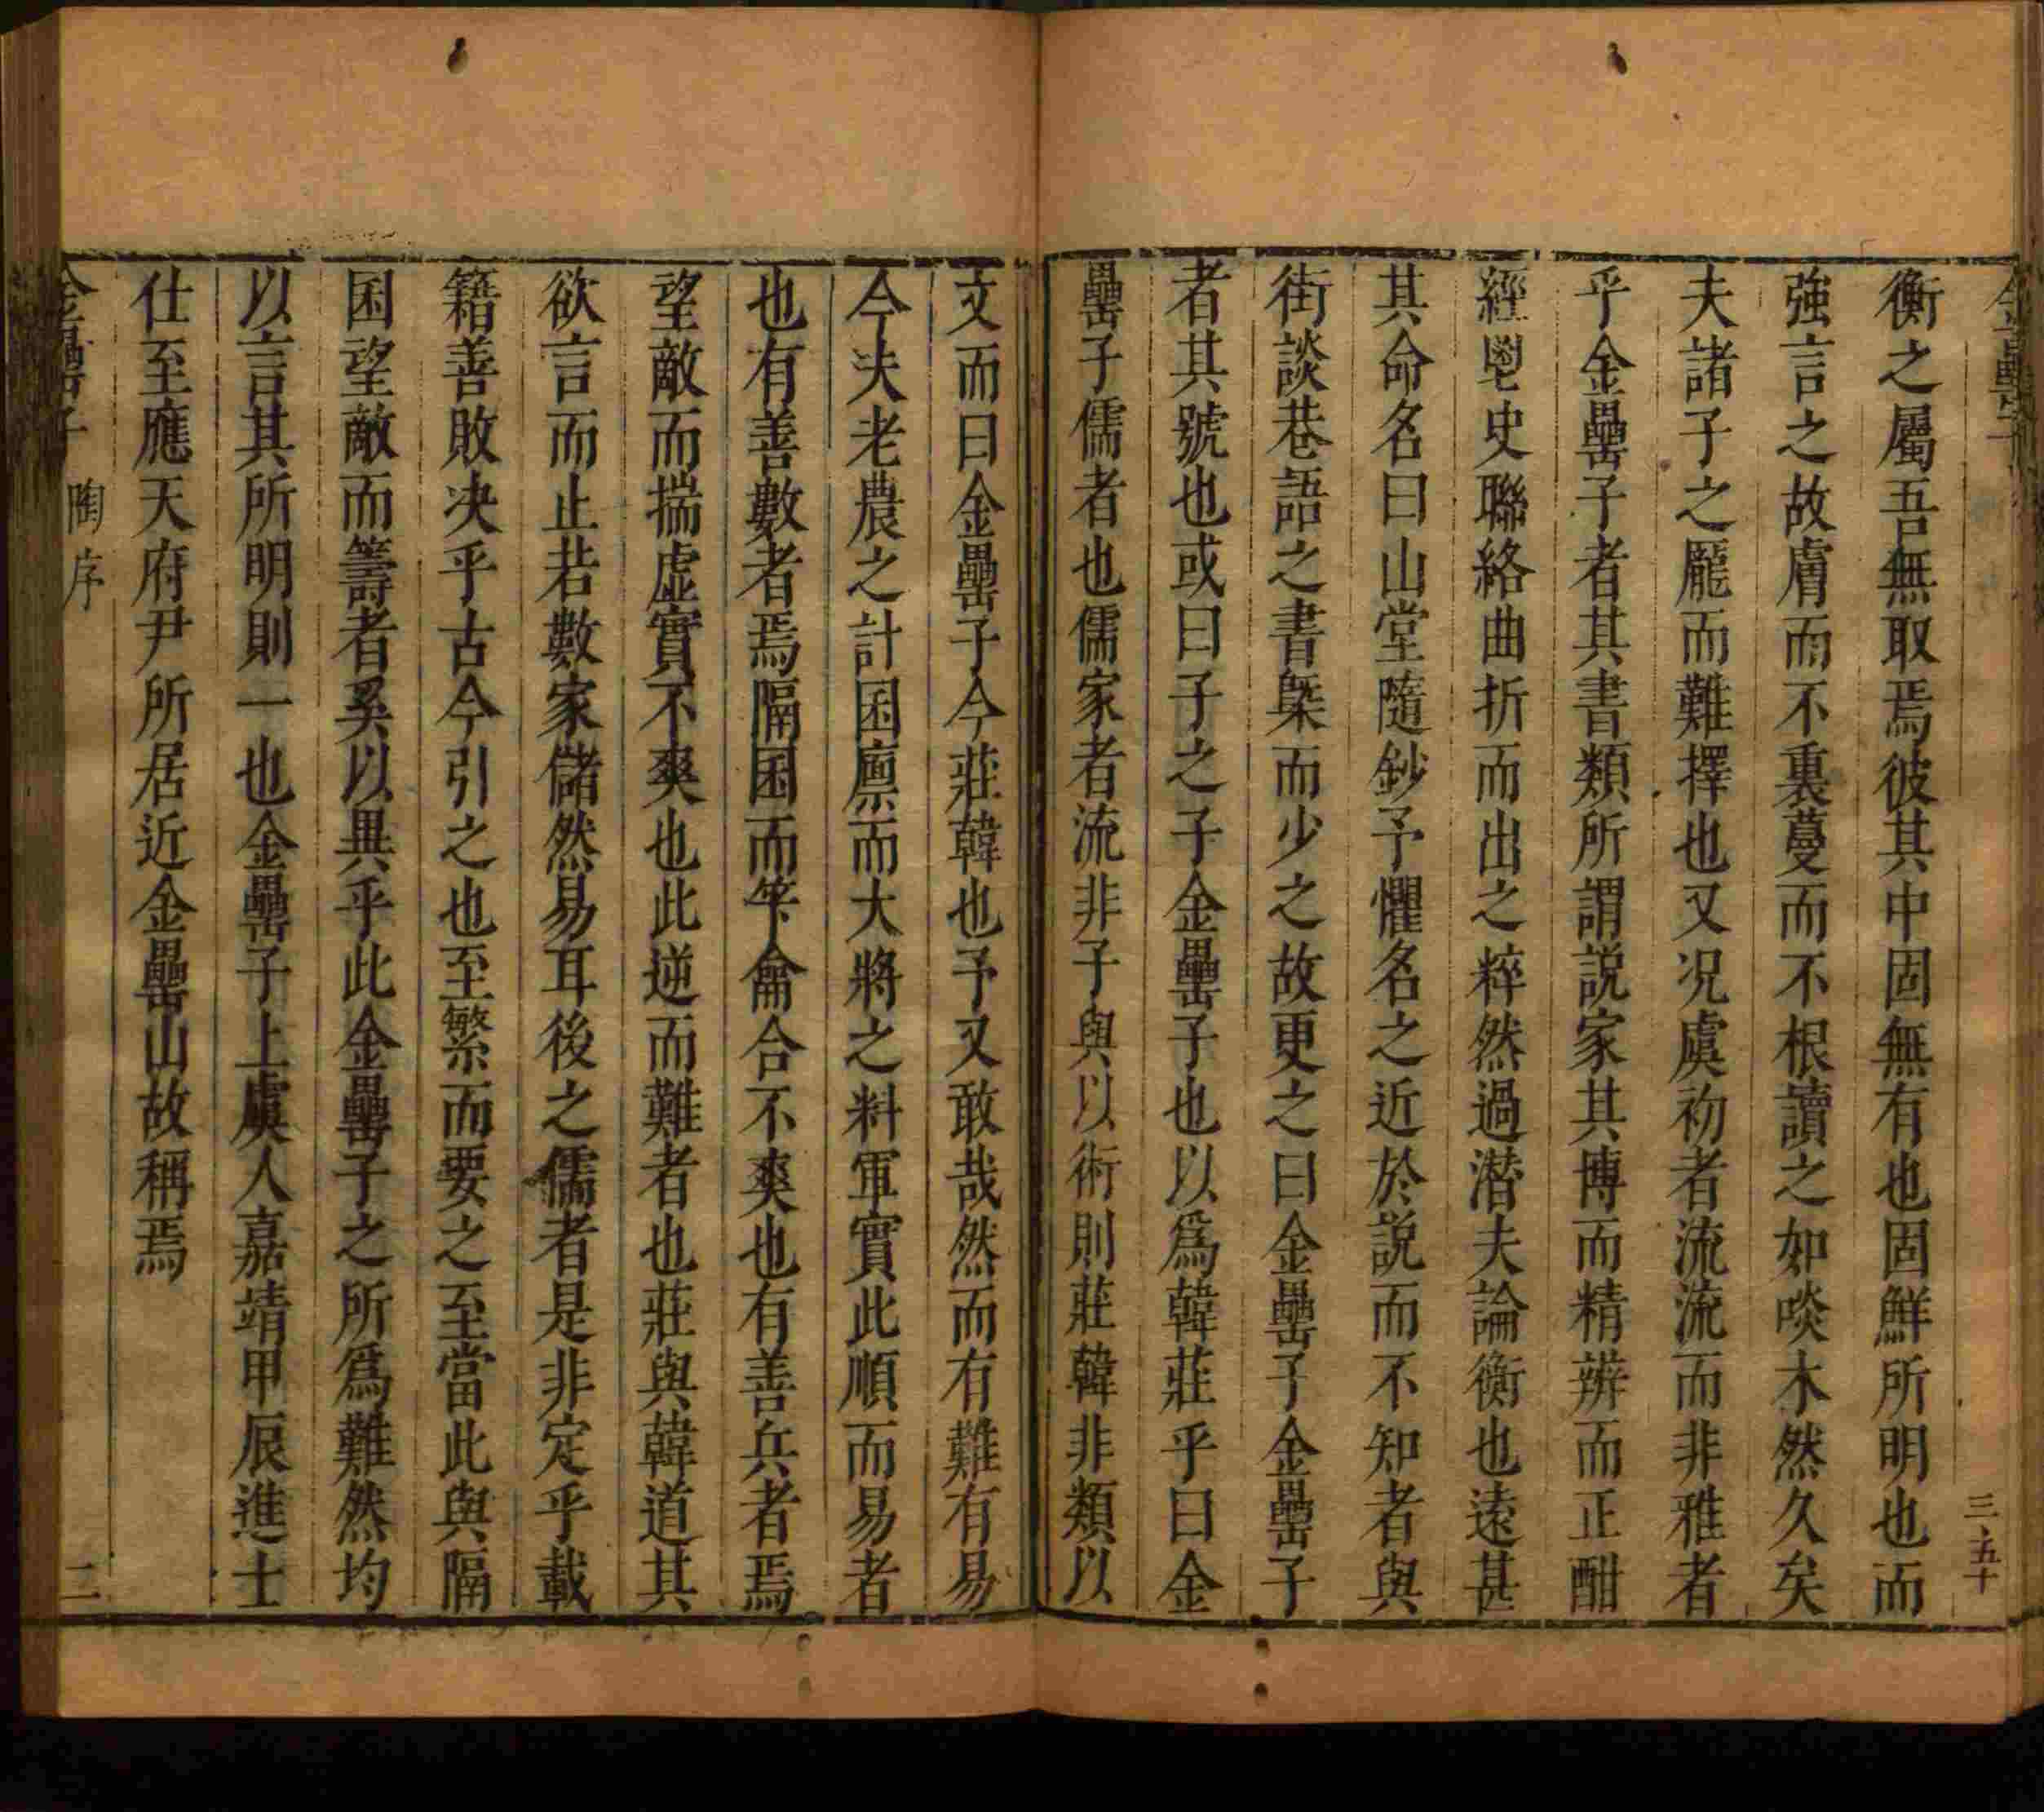 金罍子
三五十
衡之屬吾無取焉彼其中固無有也固鮮所明也而
強言之故膚而不裏蔓而不根讀之如啖木然久矣
夫諸子之龐而難擇也又况虞初者流流而非雅者
乎金罍子者其書類所謂説家其博而精辨而正酣
經鬯史聯絡曲折而出之粹然過潛夫論衡也遠甚
其命名曰山堂隨鈔予懼名之近於説而不知者與
街談巷語之書槩而少之故更之曰金罍子金罍子
者其號也或曰子之子金罍子也以爲韓莊乎曰金
罍子儒者也儒家者流非子與以術則莊韓非類以
文而曰金罍子今莊韓也予又敢哉然而有難有易
今夫老農之計囷廪而大將之料軍實此順而易者
也有善數者焉隔囷而筭龠合不爽也有善兵者焉
望敵而揣虛實不爽也此逆而難者也莊與韓道其
欲言而止若數家儲然易耳後之儒者是非定乎載
籍善敗决乎古今引之也至繁而要之至當此與隔
囷望敵而籌者奚以異乎此金罍子之所爲難然均
以言其所明則一也金罍子上虞人嘉靖甲辰進士
仕至應天府尹所居近金罍山故稱焉
金罍子 陶序 二